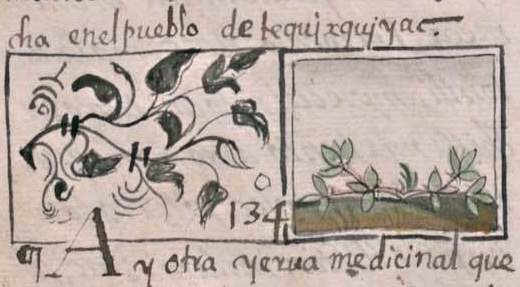 cha enel pueblo de tequixquiyac.
134
¶ Ay otra yerua medicinal que